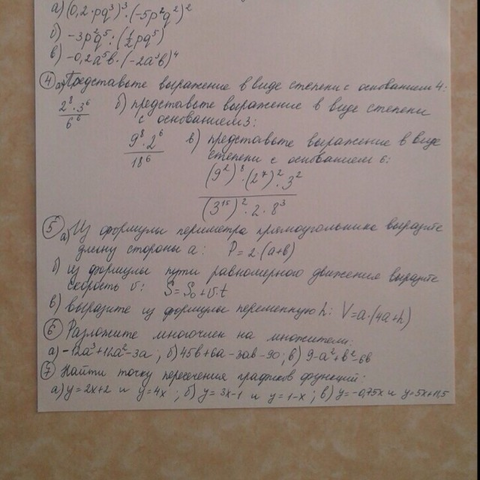 а) (0,2·pq³)³·(-5p²q²)²
б) -3p²q⁵:(½pq⁵)
в) -0,2a⁵b·(-2a³b)⁴
④ а) Представьте выражение в виде степени с основанием 4:
2⁸·3⁶/6⁶ б) представьте выражение в виде степени
с основанием 3:
9⁸·2⁶/18⁶ в) представьте выражение в виде
степени с основанием 6:
(9²)⁸·(2⁷)²·3²/(3¹⁵)²·2·8³
⑤ а) Из формулы периметра прямоугольника выразите
длину стороны a: P=2(a+b)
б) из формулы пути равномерного движения выразите
скорость v: S=S₀+v·t
в) выразите из формулы переменную h: V=a·(4a+h)
⑥ Разложите многочлен на множители:
а) -12a³+12a²-3a; б) 45b+6a-3ab-90; в) 9-a²+b²-6b
⑦ Найти точку пересечения графиков функций:
а) y=2x+2 и y=4x; б) y=3x-1 и y=1-x; в) y=-0,75x и y=5x+11,5